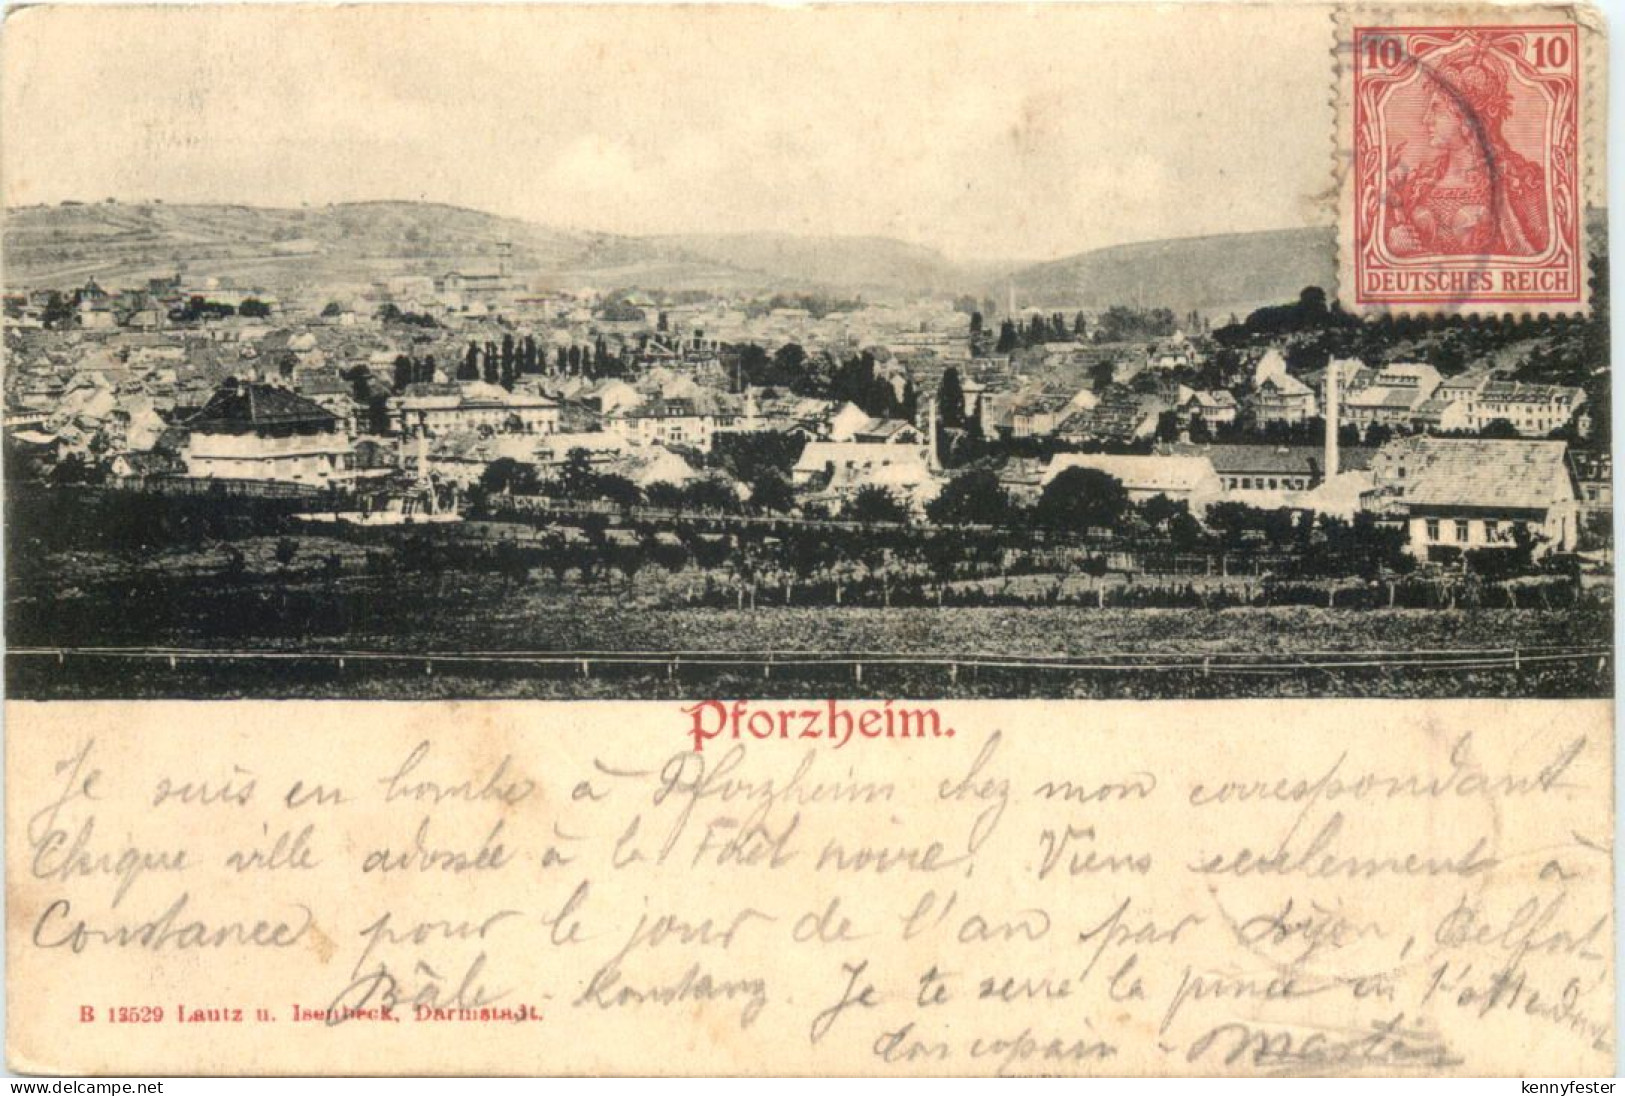 10 10
DEUTSCHES REICH
Pforzheim.
Je suis en bombe à Pforzheim chez mon correspondant.
Chique ville adossée à la Forêt noire. Viens seulement à
Constance pour le jour de l'an par Dijon, Belfort,
Bâle - Konstanz. Je te serre la pince en t'attendant
B 12529 Lautz u. Isenbeck, Darmstadt.
copain - Martin
kennyfester